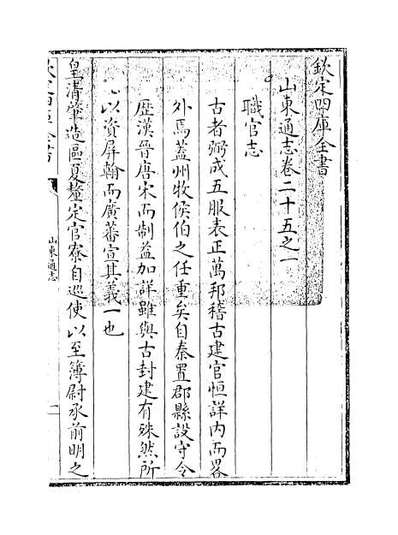 欽定四庫全書
山東通志卷二十五之一
職官志
古者弼成五服表正萬邦稽古建官恒詳内而畧
外焉蓋州牧侯伯之任重矣自秦置郡縣設守令
歴漢晉唐宋而制益加詳雖與古封建有殊然所
以資屏翰而廣蕃宣其義一也
皇清肇造區夏釐定官寮自巡使以至簿尉承前明之
山東通志